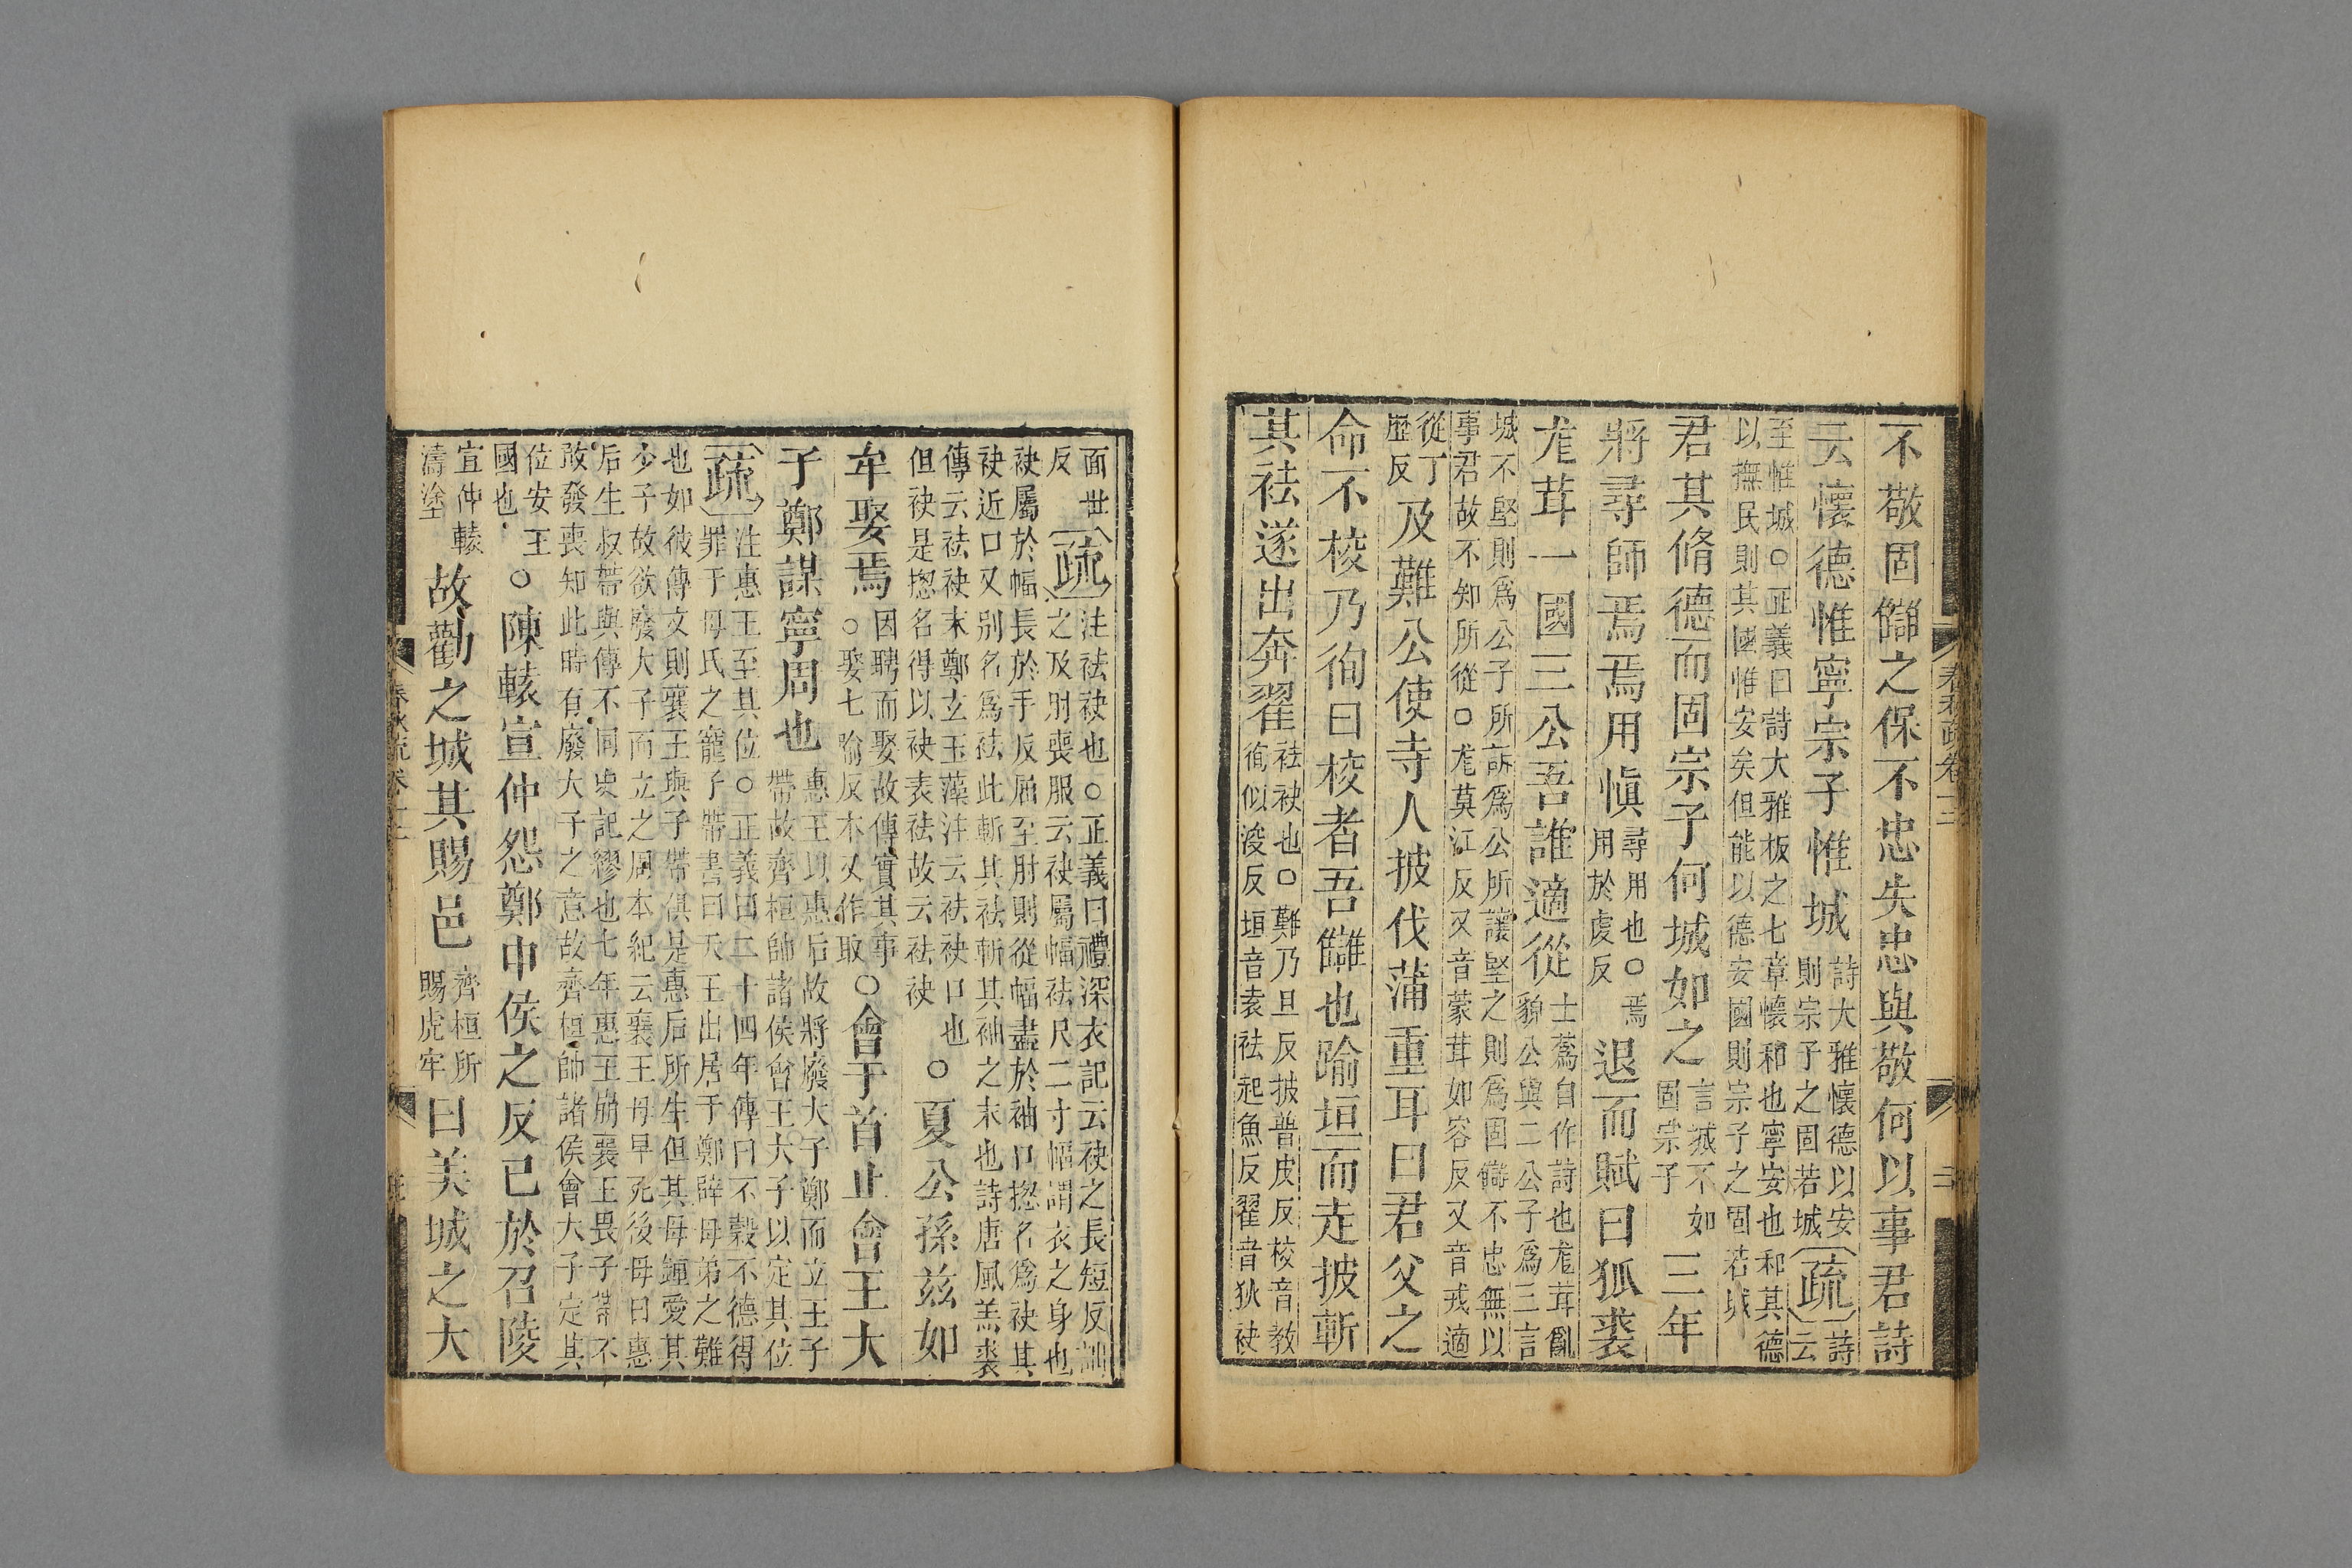 不敬固讎之保不忠失忠與敬何以事君詩
云懷德惟寧宗子惟城詩大雅懷德以安則宗子之固若城疏詩云
至惟城○正義曰詩大雅板之七章懷和也寧安也和其德
以撫民則其國惟安矣但能以德安國則宗子之固若城
君其脩德而固宗子何城如之言城不如固宗子三年
將尋師焉焉用慎尋用也○焉用於虔反退而賦曰狐裘
尨茸一國三公吾誰適從士蔿自作詩也尨茸亂貌公與二公子為三言
城不堅則為公子所訴為公所讓堅之則為固讎不忠無以
事君故不知所從○尨莫江反又音蒙茸如容反又音戎適
從丁歷反及難公使寺人披伐蒲重耳曰君父之
命不校乃徇曰校者吾讎也踰垣而走披斬
其袪遂出奔翟袪袂也○難乃旦反披普皮反校音教徇似浚反垣音袁袪起魚反翟音狄袂
面世反疏注袪袂也○正義曰禮深衣記云袂之長短反詘之及肘喪服云袂屬幅袪尺二寸幅謂衣之身也
袂屬於幅長於手反屈至肘則從幅盡於袖口揔名為袂其
袂近口又別名為袪此斬其袪斬其袖之末也詩唐風羔裘
傳云袪袂末鄭玄玉藻注云袪袂口也
但袂是揔名得以袂表袪故云袪袂○夏公孫茲如
牟娶焉因聘而娶故傳實其事○娶七喻反本又作取○會于首止會王大
子鄭謀寧周也惠王以惠后故將廢大子鄭而立王子帶故齊桓帥諸侯會王大子以定其位
疏注惠王至其位○正義曰二十四年傳曰不穀不德得罪于母氏之寵子帶書曰天王出居于鄭辟母弟之難
也如彼傳文則襄王與子帶俱是惠后所生但其母鍾愛其
少子故欲廢大子而立之周本紀云襄王母早死後母曰惠
后生叔帶與傳不同史記繆也七年惠王崩襄王畏子帶不
敢發喪知此時有廢大子之意故齊桓帥諸侯會大子定其
位安王國也○陳轅宣仲怨鄭申侯之反己於召陵
宣仲轅濤塗故勸之城其賜邑齊桓所賜虎牢曰美城之大
春秋疏卷十二
二